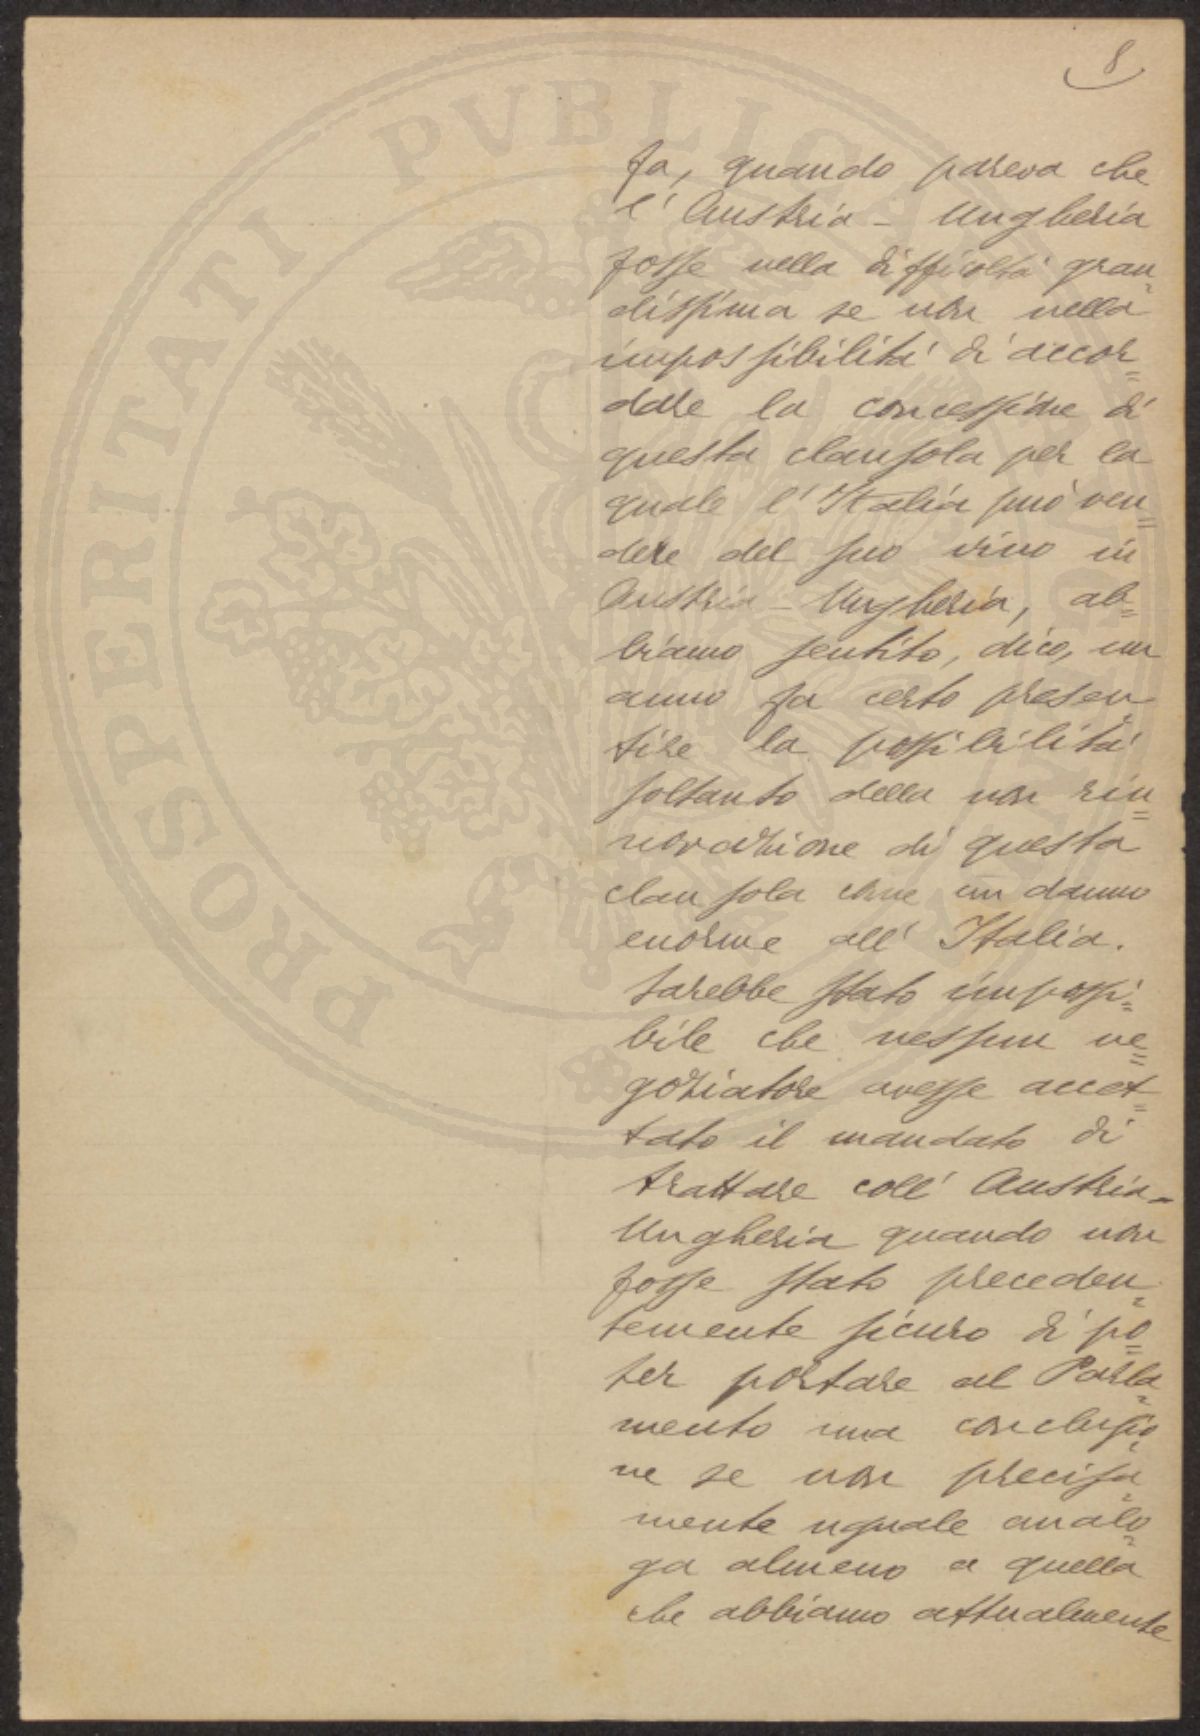 8
fa, quando pareva che
l' Austria - Ungheria
fosse nella difficoltà gran=
dissima se non nella
impossibilità di accor=
dare la concessione di
questa clausola per la
quale l' Italia può ven=
dere del suo vino in
Austria - Ungheria, ab=
biamo sentito, dico, un
anno fa certo presen=
tire la possibilità
soltanto della non rin=
novazione di questa
clausola come un danno
enorme all' Italia.
Sarebbe stato impossi=
bile che nessun ne=
goziatore avesse accet=
tato il mandato di
trattare coll' Austria-
Ungheria quando non
fosse stato preceden=
temente sicuro di po=
ter portare al Parla=
mento una conclusio=
ne se non precisa=
mente uguale analo=
ga almeno a quella
che abbiamo attualmente
PROSPERITATI PVBLICAE